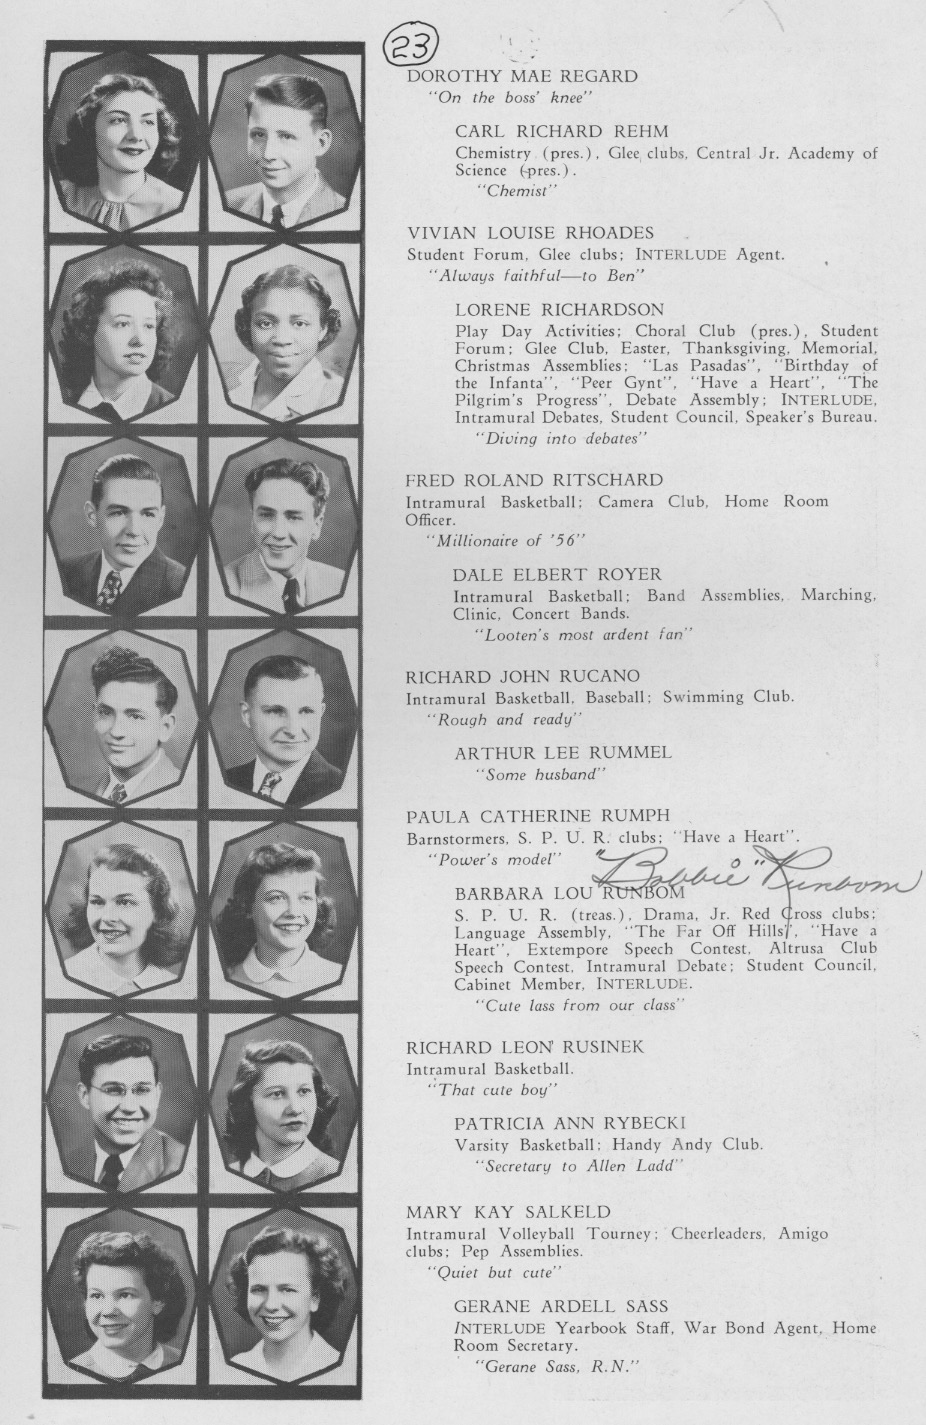 23
DOROTHY MAE REGARD
"On the boss' knee"
CARL RICHARD REHM
Chemistry (pres.), Glee clubs, Central Jr. Academy of
Science (pres.).
"Chemist"
VIVIAN LOUISE RHOADES
Student Forum, Glee clubs; INTERLUDE Agent.
"Always faithful—to Ben"
LORENE RICHARDSON
Play Day Activities; Choral Club (pres.), Student
Forum; Glee Club, Easter, Thanksgiving, Memorial,
Christmas Assemblies; "Las Pasadas", "Birthday of
the Infanta", "Peer Gynt", "Have a Heart", "The
Pilgrim's Progress", Debate Assembly; INTERLUDE,
Intramural Debates, Student Council, Speaker's Bureau.
"Diving into debates"
FRED ROLAND RITSCHARD
Intramural Basketball; Camera Club, Home Room
Officer.
"Millionaire of '56"
DALE ELBERT ROYER
Intramural Basketball; Band Assemblies, Marching,
Clinic, Concert Bands.
"Looten's most ardent fan"
RICHARD JOHN RUCANO
Intramural Basketball, Baseball; Swimming Club.
"Rough and ready"
ARTHUR LEE RUMMEL
"Some husband"
PAULA CATHERINE RUMPH
Barnstormers, S. P. U. R. clubs; "Have a Heart".
"Power's model"
"Bobbie" Runbom
BARBARA LOU RUNBOM
S. P. U. R. (treas.), Drama, Jr. Red Cross clubs;
Language Assembly, "The Far Off Hills", "Have a
Heart", Extempore Speech Contest, Altrusa Club
Speech Contest, Intramural Debate; Student Council,
Cabinet Member, INTERLUDE.
"Cute lass from our class"
RICHARD LEON RUSINEK
Intramural Basketball.
"That cute boy"
PATRICIA ANN RYBECKI
Varsity Basketball; Handy Andy Club.
"Secretary to Allen Ladd"
MARY KAY SALKELD
Intramural Volleyball Tourney; Cheerleaders, Amigo
clubs; Pep Assemblies.
"Quiet but cute"
GERANE ARDELL SASS
INTERLUDE Yearbook Staff, War Bond Agent, Home
Room Secretary.
"Gerane Sass, R.N."